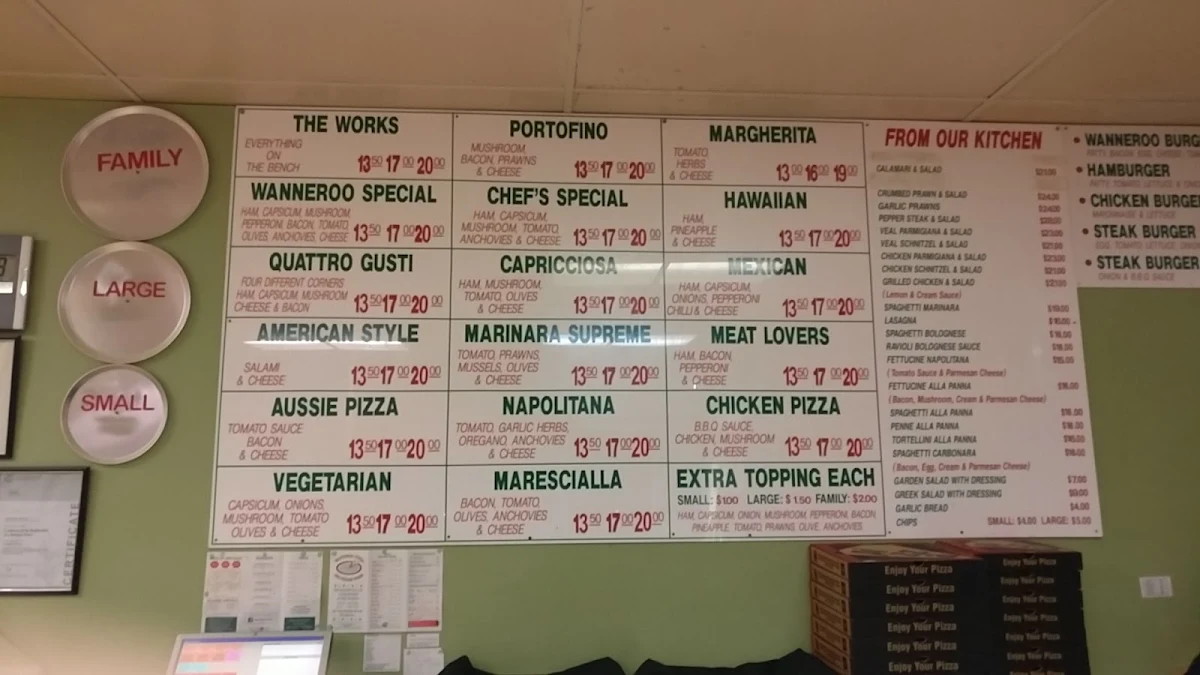 FAMILY
LARGE
SMALL
THE WORKS
EVERYTHING
ON
THE BENCH
13 50 17 00 20 00
PORTOFINO
MUSHROOM,
BACON, PRAWNS
& CHEESE
13 50 17 00 20 00
MARGHERITA
TOMATO,
HERBS
& CHEESE
13 00 16 00 19 00
WANNEROO SPECIAL
HAM, CAPSICUM, MUSHROOM,
PEPPERONI, BACON, TOMATO,
OLIVES, ANCHOVIES & CHEESE
13 50 17 00 20 00
CHEF'S SPECIAL
HAM, CAPSICUM,
MUSHROOM, TOMATO,
ANCHOVIES & CHEESE
13 50 17 00 20 00
HAWAIIAN
HAM,
PINEAPPLE
& CHEESE
13 50 17 00 20 00
QUATTRO GUSTI
FOUR DIFFERENT CORNERS
HAM, CAPSICUM, MUSHROOM
CHEESE & BACON
13 50 17 00 20 00
CAPRICCIOSA
HAM, MUSHROOM,
TOMATO, OLIVES
& CHEESE
13 50 17 00 20 00
MEXICAN
HAM, CAPSICUM,
ONIONS, PEPPERONI
CHILLI & CHEESE
13 50 17 00 20 00
AMERICAN STYLE
SALAMI
& CHEESE
13 50 17 00 20 00
MARINARA SUPREME
TOMATO, PRAWNS,
MUSSELS, OLIVES
& CHEESE
13 50 17 00 20 00
MEAT LOVERS
HAM, BACON,
PEPPERONI
& CHEESE
13 50 17 00 20 00
AUSSIE PIZZA
TOMATO SAUCE
BACON
& CHEESE
13 50 17 00 20 00
NAPOLITANA
TOMATO, GARLIC HERBS,
OREGANO, ANCHOVIES
& CHEESE
13 50 17 00 20 00
CHICKEN PIZZA
B.B.Q SAUCE,
CHICKEN, MUSHROOM
& CHEESE
13 50 17 00 20 00
VEGETARIAN
CAPSICUM, ONIONS,
MUSHROOM, TOMATO
OLIVES & CHEESE
13 50 17 00 20 00
MARESCIALLA
BACON, TOMATO,
OLIVES, ANCHOVIES
& CHEESE
13 50 17 00 20 00
EXTRA TOPPING EACH
SMALL: $1.00 LARGE: $1.50 FAMILY: $2.00
HAM, CAPSICUM, ONION, MUSHROOM, PEPPERONI, BACON,
PINEAPPLE, TOMATO, PRAWNS, OLIVE, ANCHOVIES
FROM OUR KITCHEN
CALAMARI & SALAD
CRUMBED PRAWN & SALAD
GARLIC PRAWNS
PEPPER STEAK & SALAD
VEAL PARMIGIANA & SALAD
VEAL SCHNITZEL & SALAD
CHICKEN PARMIGIANA & SALAD
CHICKEN SCHNITZEL & SALAD
GRILLED CHICKEN & SALAD
(Lemon & Cream Sauce)
SPAGHETTI MARINARA
LASAGNA
SPAGHETTI BOLOGNESE
RAVIOLI BOLOGNESE SAUCE
FETTUCINE NAPOLITANA
(Tomato Sauce & Parmesan Cheese)
FETTUCINE ALLA PANNA
(Bacon, Mushroom, Cream & Parmesan Cheese)
SPAGHETTI ALLA PANNA
PENNE ALLA PANNA
TORTELLINI ALLA PANNA
SPAGHETTI CARBONARA
(Bacon, Egg, Cream & Parmesan Cheese)
GARDEN SALAD WITH DRESSING $7.00
GREEK SALAD WITH DRESSING
GARLIC BREAD $4.00
CHIPS SMALL: $4.00 LARGE: $5.00
• WANNEROO BURG
• HAMBURGER
• CHICKEN BURGE
MAYONNAISE & LETTUCE
• STEAK BURGER
• STEAK BURGER
ONION & B.B.Q SAUCE
CERTIFICATE
Enjoy Your Pizza
Enjoy Your Pizza
Enjoy Your Pizza
Enjoy Your Pizza
Enjoy Your Pizza
Enjoy Your Pizza
Enjoy Your Pizza
Enjoy Your Pizza
Enjoy Your Pizza
Enjoy Your Pizza
Enjoy Your Pizza
Enjoy Your Pizza